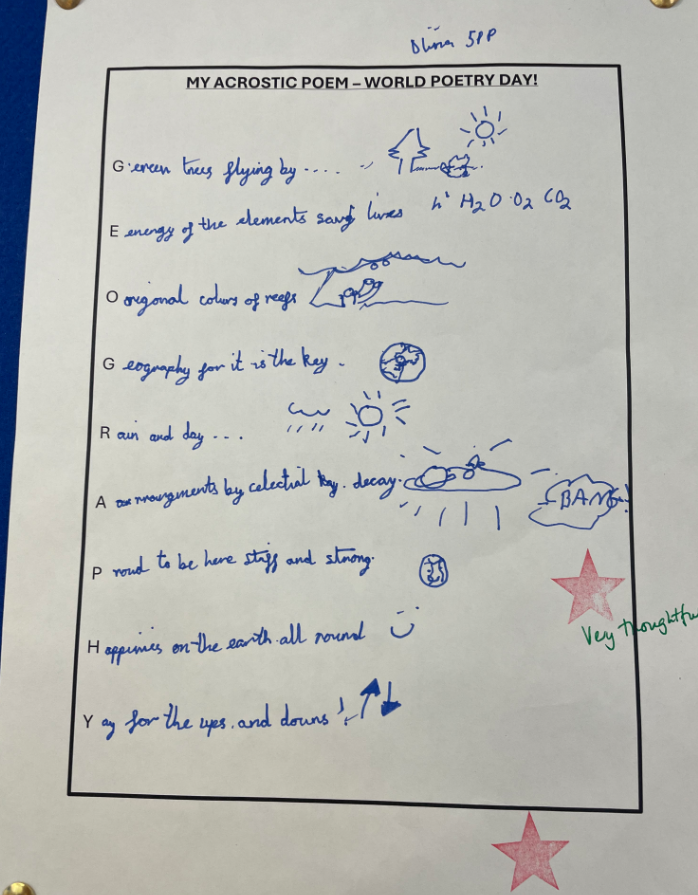 Olivia 5PP
MY ACROSTIC POEM – WORLD POETRY DAY!
G reen trees flying by ....
E energy of the elements saves lives H2O O2 CO2
O origonal colurs of reefs
G eography for it is the key.
R ain and day ...
A arrangments by celectial decay.
BANG!
P roud to be here stiff and strong.
H appinies on the earth all round
Y ay for the ups and downs!
Very thoughtful